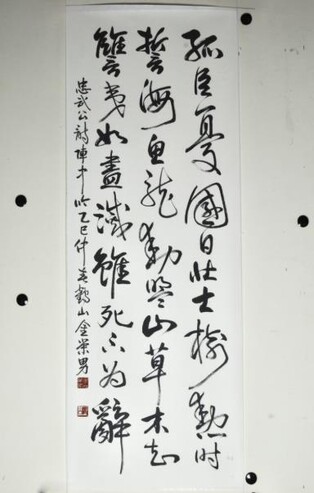 孤臣憂國日壮士樹勲时
誓海魚龍動盟山草木知
讐夷如盡滅雖死不為辭
忠武公詩陣中吟乙巳仲春鶴山金榮男